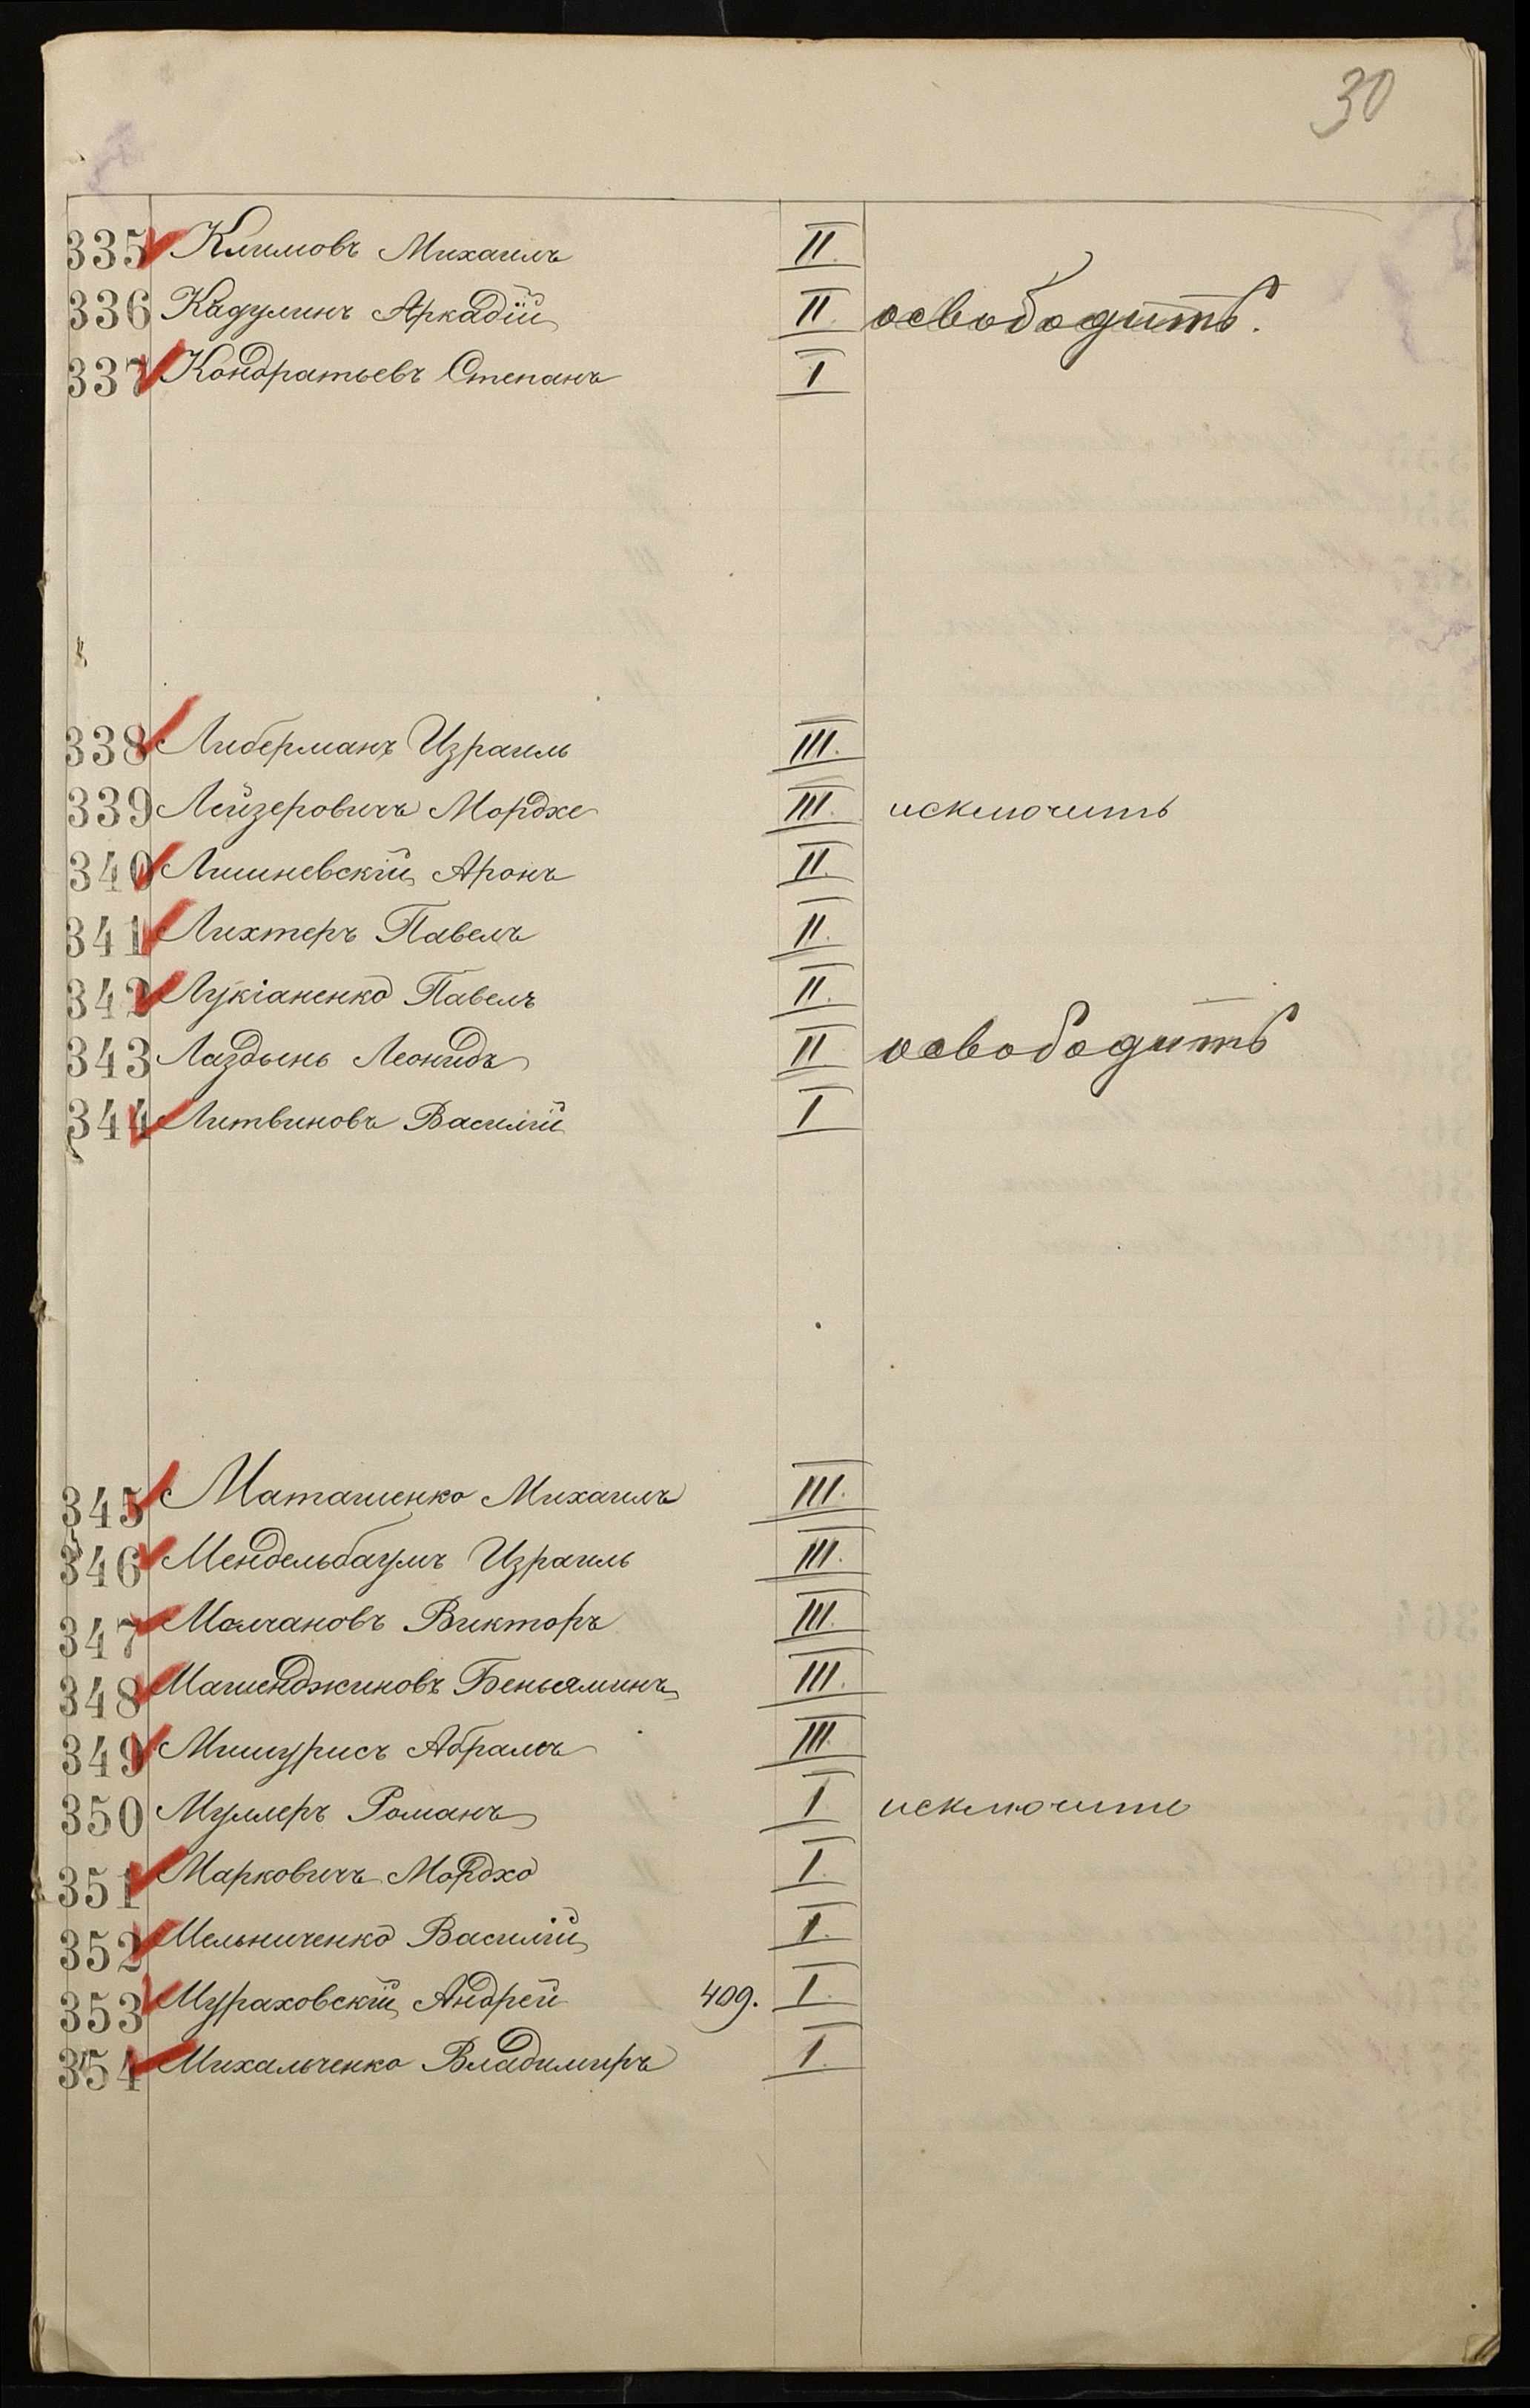 30
335 Климовъ Михаилъ II.
336 Кадулинъ Аркадій II. освободить.
337 Кондратьевъ Степанъ I
338 Либерманъ Израиль III.
339 Лейзеровичъ Мордхе III. исключить
340 Лишневскій Аронъ II.
341 Лихтеръ Павелъ II.
342 Лукіаненко Павелъ II.
343 Лаздынь Леонидъ II освободить
344 Литвиновъ Василій I
345 Маташенко Михаилъ III.
346 Мендельбаумъ Израиль III.
347 Молчановъ Викторъ III.
348 Машенджиновъ Беньяминъ III.
349 Мишурисъ Абрамъ III.
350 Муллеръ Романъ I исключить
351 Марковичъ Мордхо I.
352 Мельниченко Василій I.
353 Мураховскій Андрей 409. I.
354 Михальченко Владимиръ I.